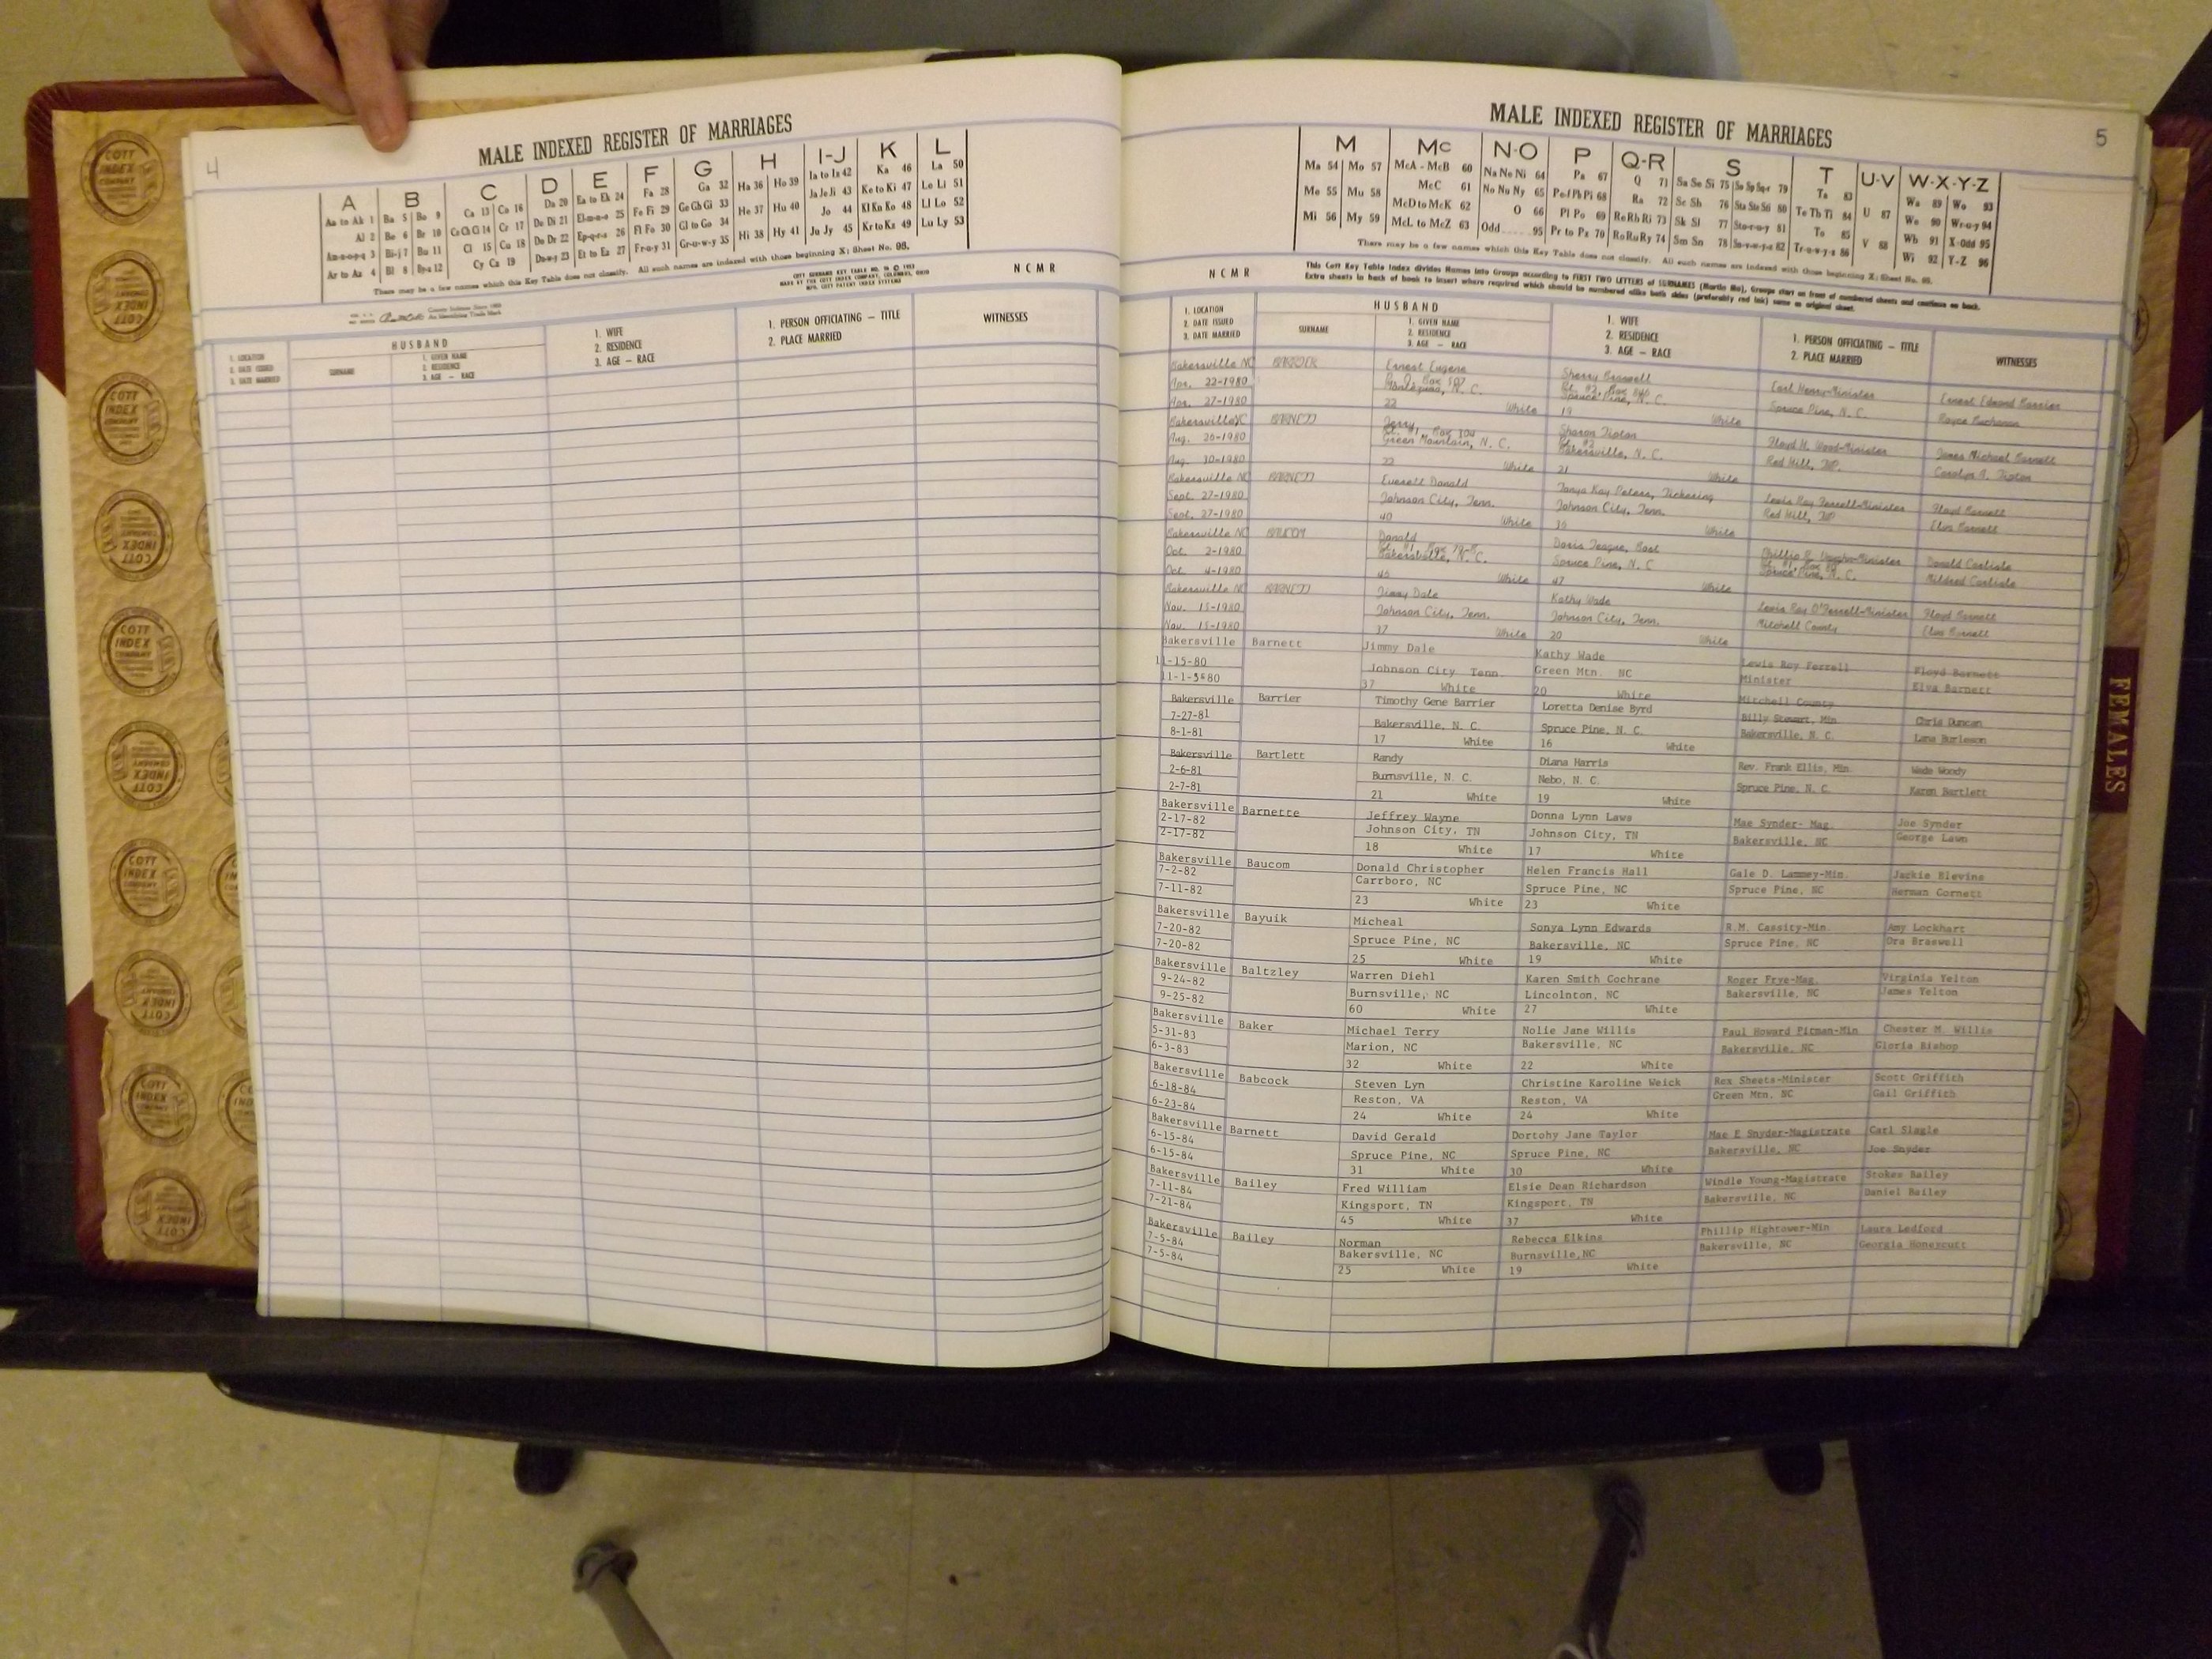 4
MALE INDEXED REGISTER OF MARRIAGES
A B C D E F G H I-J K L
Aa to Ak 1 Ba 5 Bo 9 Ca 13 Co 16 Da 20 Ea to Ek 24 Fa 28 Ga 32 Ha 36 Ho 39 Ia to Iz 42 Ka 46 La 50
Al 2 Be 6 Br 10 Ce Ch Ci 14 Cr 17 De Di 21 El-m-n-o 25 Fe Fi 29 Ge Gh Gi 33 He 37 Hu 40 Ja Je Ji 43 Ke to Ki 47 Le Li 51
Am-n-o-p-q 3 Bi-j 7 Bu 11 Cl 15 Cu 18 Do Dr 22 Ep-q-r-s 26 Fl Fo 30 Gl to Go 34 Hi 38 Hy 41 Jo 44 Kl Kn Ko 48 Ll Lo 52
Ar to Az 4 Bl 8 By-z 12 Cy Cz 19 Du-w-y 23 Et to Ez 27 Fr-u-y 31 Gr-u-w-y 35 Ju Jy 45 Kr to Kz 49 Lu Ly 53
There may be a few names which this Key Table does not classify. All such names are indexed with those beginning X: Sheet No. 95.
NCMR
1. LOCATION
2. DATE ISSUED
3. DATE MARRIED
HUSBAND
SURNAME
1. GIVEN NAME
2. RESIDENCE
3. AGE – RACE
1. WIFE
2. RESIDENCE
3. AGE – RACE
1. PERSON OFFICIATING – TITLE
2. PLACE MARRIED
WITNESSES
5
MALE INDEXED REGISTER OF MARRIAGES
M Mc N-O P Q-R S T U-V W-X-Y-Z
Ma 54 Mo 57 McA - McB 60 Na Ne Ni 64 Pa 67 Q 71 Sa Se Si 75 So Sp Sq-r 79 Ta 83 Wa 89 Wo 93
Me 55 Mu 58 McC 61 No Nu Ny 65 Pe-f Ph Pi 68 Ra 72 Sc Sh 76 Sta Ste Sti 80 Te Th Ti 84 U 87 We 90 Wr-u-y 94
Mi 56 My 59 McD to McK 62 O 66 Pl Po 69 Re Rh Ri 73 Sk Sl 77 Sto-r-u-y 81 To 85 V 88 Wh 91 X-Odd 95
McL to McZ 63 Odd 95 Pr to Pz 70 Ro Ru Ry 74 Sm Sn 78 Su-v-w-y-z 82 Tr-u-w-y-z 86 Wi 92 Y-Z 96
There may be a few names which this Key Table does not classify. All such names are indexed with those beginning X: Sheet No. 95.
NCMR
This Cott Key Table Index divides Names into Groups according to FIRST TWO LETTERS of SURNAMES (Martin Ma), Groups start on front of numbered sheets and continue on back.
Extra sheets in back of book to insert where required which should be numbered alike both sides (preferably red ink) same as original sheet.
1. LOCATION
2. DATE ISSUED
3. DATE MARRIED
HUSBAND
SURNAME
1. GIVEN NAME
2. RESIDENCE
3. AGE – RACE
1. WIFE
2. RESIDENCE
3. AGE – RACE
1. PERSON OFFICIATING – TITLE
2. PLACE MARRIED
WITNESSES
Bakersville NC Ernest Eugene Sherry Braswell Earl Henry-Minister Ernest Edmond Barrier
Apr. 22-1980 P. O. Box 507 Rt. #2, Box
N. C. Spruce Pine, N. C. Spruce Pine, N. C. Royce Buchanan
Apr. 27-1980 22 White 19 White
Bakersville NC BARNETT Jerry Sharon Tipton Floyd H. Wood-Minister James Michael Barnett
Aug. 26-1980 Rt. #1, Box 104 Rt. #2
Green Mountain, N. C. Bakersville, N. C. Red Hill, Carolyn A. Tipton
Aug. 30-1980 22 White 21 White
Bakersville NC BARNETT Everett Donald Tanya Kay Peters, Pickering Lewis Ray Ferrell-Minister Floyd Barnett
Sept. 27-1980 Johnson City, Tenn. Johnson City, Tenn. Red Hill, Elva Barnett
Sept. 27-1980 40 White 36 White
Bakersville NC BAUCOM Donald Doris Teague, Boot Phillip R. Vaughn-Minister Donald Carlisle
Oct. 2-1980 Rt. #1, Box
Bakersville, N. C. Spruce Pine, N. C Spruce Pine, N. C. Mildred Carlisle
Oct. 4-1980 45 White 47 White
Bakersville NC BARNETT Jimmy Dale Kathy Wade Lewis Ray O'Ferrell-Minister Floyd Barnett
Nov. 15-1980 Johnson City, Tenn. Johnson City, Tenn. Mitchell County Elva Barnett
Nov. 15-1980 37 White 20 White
Bakersville Barnett Jimmy Dale Kathy Wade Lewis Roy Ferrell Floyd Barnett
11-15-80 Johnson City Tenn. Green Mtn. NC Minister Elva Barnett
11-1-5*80 37 White 20 White Mitchell County
Bakersville Barrier Timothy Gene Barrier Loretta Denise Byrd Billy Stewart, Min Chris Duncan
7-27-81 Bakersville, N. C. Spruce Pine, N. C. Bakersville, N. C. Lana Burleson
8-1-81 17 White 16 White
Bakersville Bartlett Randy Diana Harris Rev. Frank Ellis, Min. Wade Woody
2-6-81 Burnsville, N. C. Nebo, N. C. Spruce Pine, N. C. Karen Bartlett
2-7-81 21 White 19 White
Bakersville Barnette Jeffrey Wayne Donna Lynn Laws Mae Synder- Mag. Joe Synder
2-17-82 Johnson City, TN Johnson City, TN Bakersville, NC George Lawn
2-17-82 18 White 17 White
Bakersville Baucom Donald Christopher Helen Francis Hall Gale D. Lammey-Min. Jackie Blevins
7-2-82 Carrboro, NC Spruce Pine, NC Spruce Pine, NC Herman Gornett
7-11-82 23 White 23 White
Bakersville Bayuik Micheal Sonya Lynn Edwards R.M. Cassity-Min. Amy Lockhart
7-20-82 Spruce Pine, NC Bakersville, NC Spruce Pine, NC Ora Braswell
7-20-82 25 White 19 White
Bakersville Baltzley Warren Diehl Karen Smith Cochrane Roger Frye-Mag. Virginia Yelton
9-24-82 Burnsville, NC Lincolnton, NC Bakersville, NC James Yelton
9-25-82 60 White 27 White
Bakersville Baker Michael Terry Nolie Jane Willis Paul Howard Pitman-Min Chester M. Willis
5-31-83 Marion, NC Bakersville, NC Bakersville, NC Gloria Bishop
6-3-83 32 White 22 White
Bakersville Babcock Steven Lyn Christine Karoline Weick Rex Sheets-Minister Scott Griffith
6-18-84 Reston, VA Reston, VA Green Mtn. NC Gail Griffith
6-23-84 24 White 24 White
Bakersville Barnett David Gerald Dortohy Jane Taylor Mae E Snyder-Magistrate Carl Slagle
6-15-84 Spruce Pine, NC Spruce Pine, NC Bakersville, NC Joe Snyder
6-15-84 31 White 30 White
Bakersville Bailey Fred William Elsie Dean Richardson Windle Young-Magistrate Stokes Bailey
7-11-84 Kingsport, TN Kingsport, TN Bakersville, NC Daniel Bailey
7-21-84 45 White 37 White
Bakersville Bailey Norman Rebecca Elkins Phillip Hightower-Min Laura Ledford
7-5-84 Bakersville, NC Burnsville,NC Bakersville, NC Georgia Honeycutt
7-5-84 25 White 19 White
FEMALES
COTT
INDEX
COMPANY